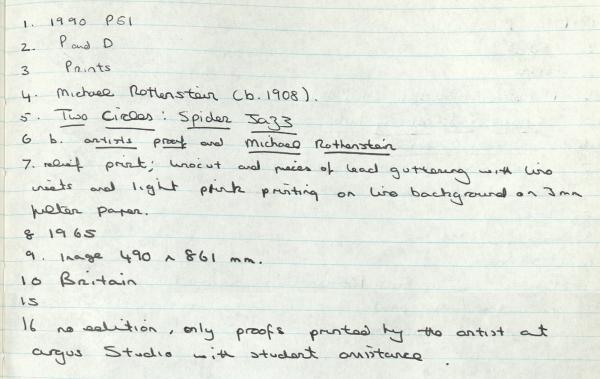 1. 1990 PG1
2. P and D
3 Prints
4. Michael Rothenstein (b. 1908).
5. Two Circles: Spider Jazz
6 b. artists proof and Michael Rothenstein
7. relief print; linocut and pieces of lead guttering with lino
insets and light pink printing on lino background on 3mm
filter paper.
8 1965
9. Image 490 x 861 mm.
10 Britain
15
16 no edition, only proofs printed by the artist at
argus Studio with student assistance.